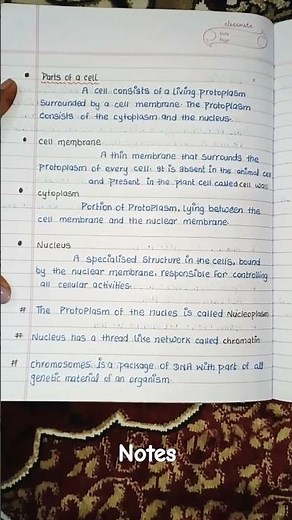 classmate
Date
Page
Parts of a cell
A cell consists of a living protoplasm
surrounded by a cell membrane. The Protoplasm
consists of the cytoplasm and the nucleus.
cell membrane
A thin membrane that surrounds the
protoplasm of every cell. It is absent in the animal cell
and present in the plant cell called cell wall
cytoplasm
Portion of Protoplasm, lying between the
cell membrane and the nuclear membrane.
Nucleus
A specialised structure in the cells, bound
by the nuclear membrane, responsible for controlling
all cellular activities.
# The Protoplasm of the nucles is called Nucleoplasm
# Nucleus has a thread like network called chromatin
# chromosomes is a package of DNA with part of all
genetic material of an organism.
Notes